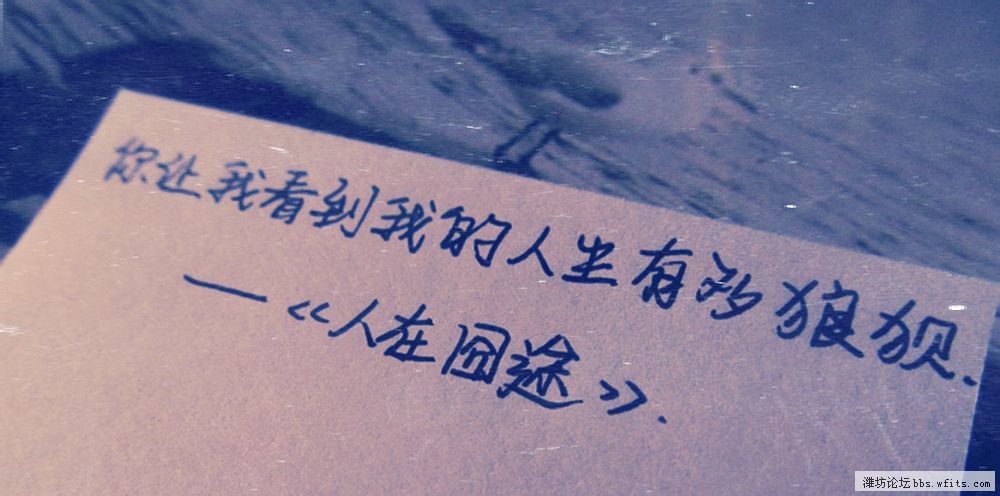 你让我看到我的人生有多狼狈.
——《人在囧途》.
潍坊论坛bbs.wfits.com